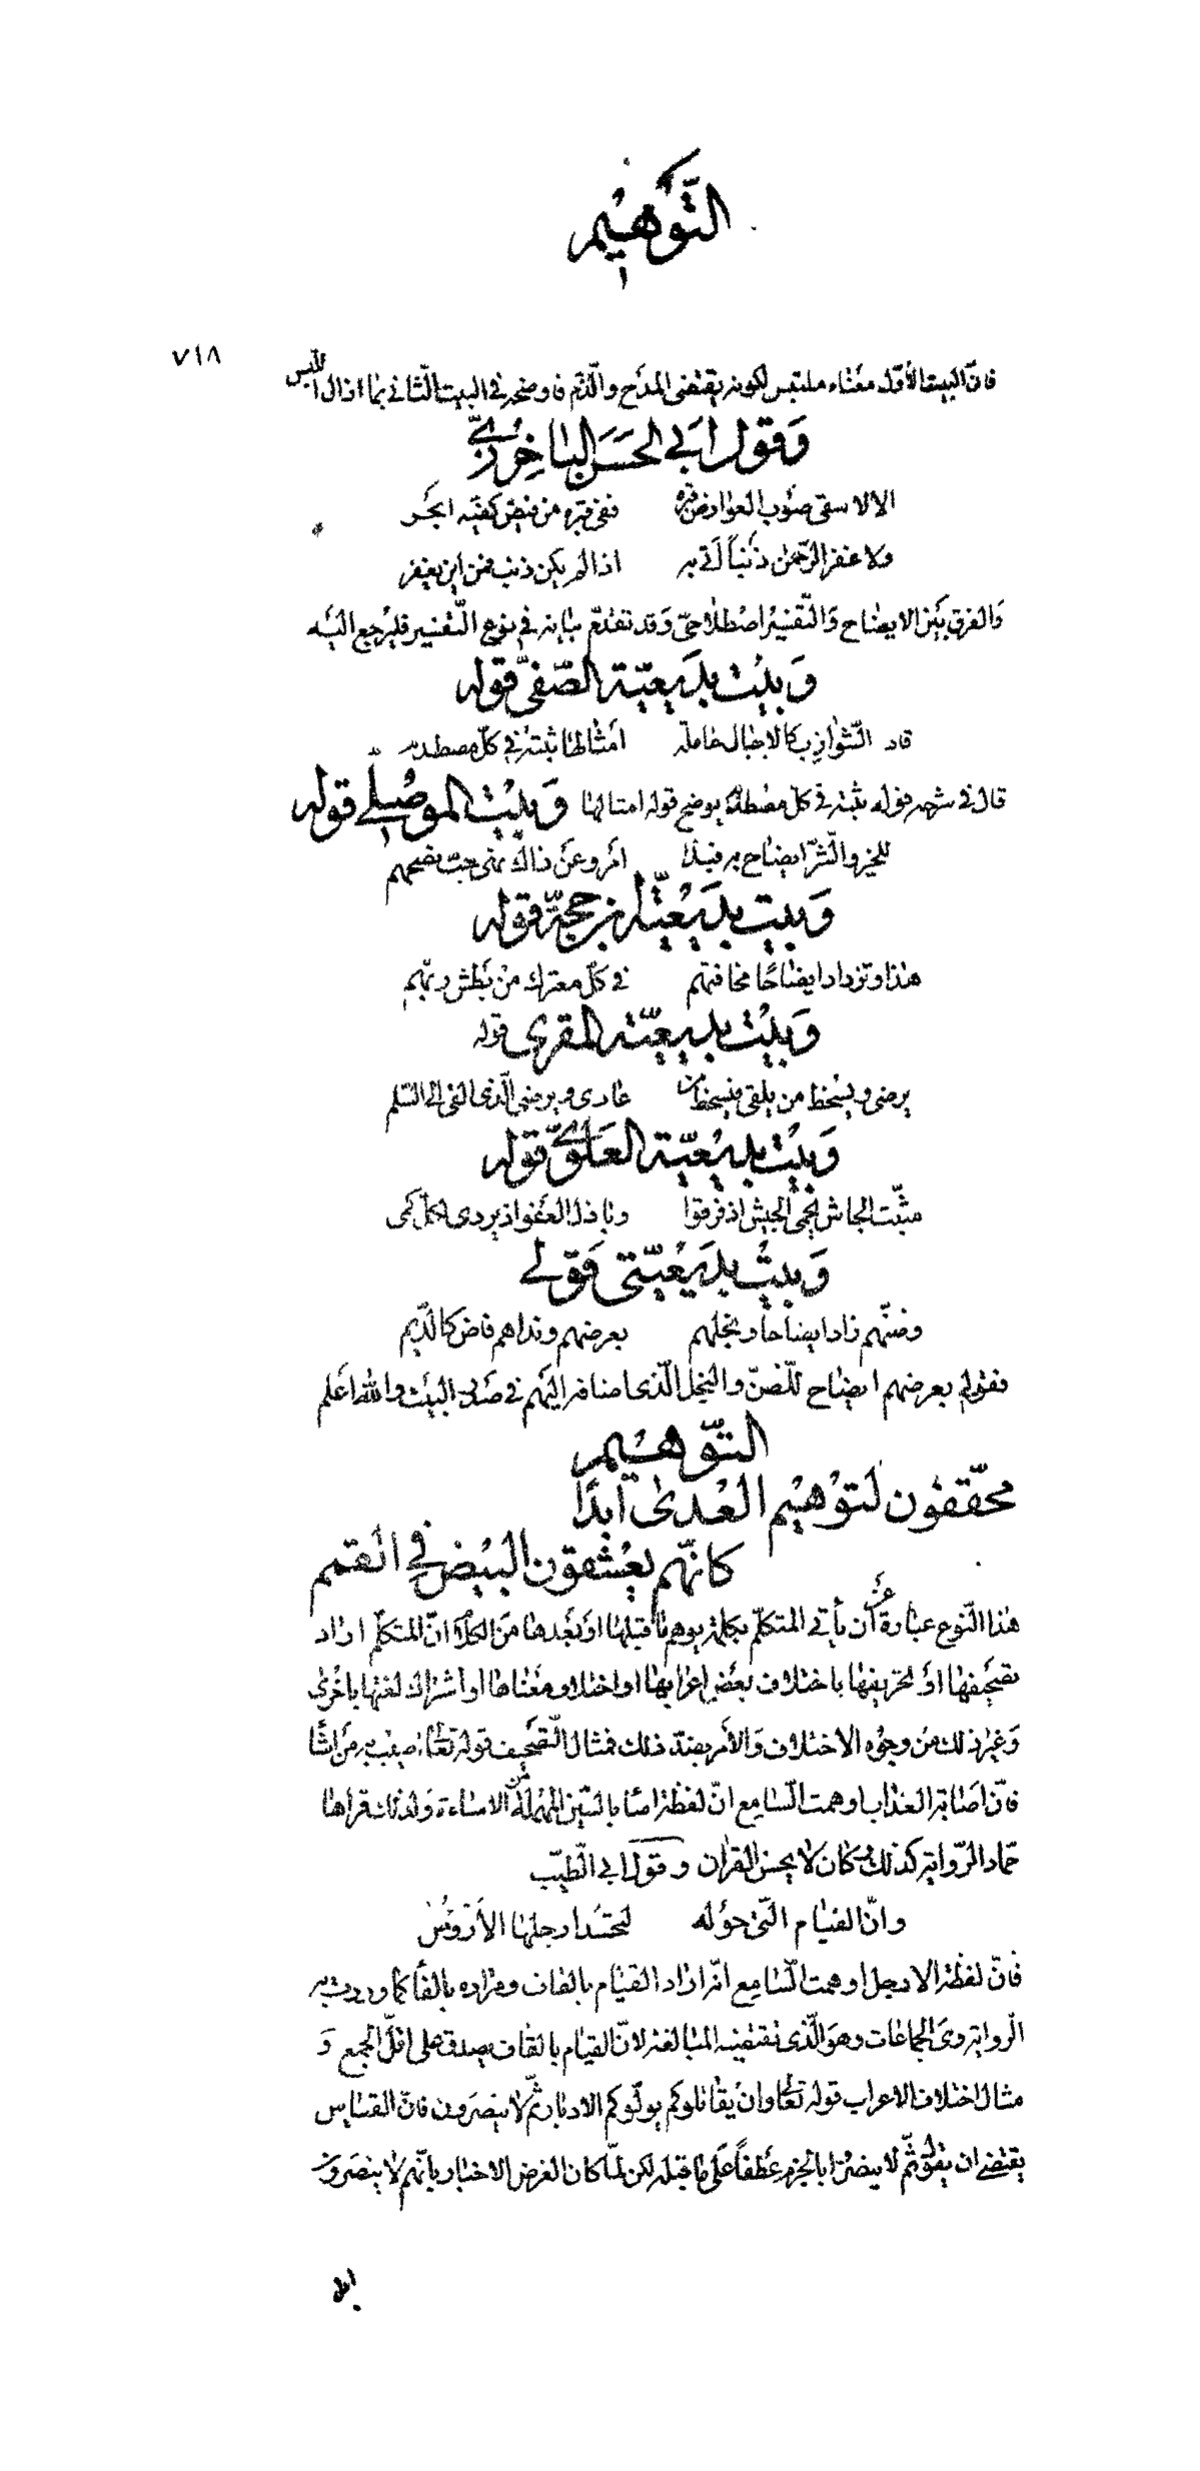 التّوهيم
٧١٨
فانّ البيت الأوّل معناه ملتبس لكونه يقتضى المدح والذّم فاوضحه في البيت الثّاني بما ازال اللّبس
وَقول ابي الحَسَن الباخرزيّ
الا لا سقى صوب العوارض قبره ففى قبره من فيض كفّيه ابحر
ولا غفر الرّحمن ذنباً له به اذا لم يكن ذنب فمن اين يغفر
وَالفرق بَين الايضاح وَالتّفسير اصطلاحيّ وَقد تقدّم بيانه في نوع التّفسير فليرجع اليه
وَبيت بديعيّة الصّفيّ قوله
قاد الشّوازب كالاجبال حاملة امثالها ثبتة في كلّ مصطدم
قال في شرحه فقوله ثبتة في كلّ مصطدم يوضح قوله امثالها وَبيت الموصليّ قوله
للخير والشّرّ ايضاح به فبذا امر وعن ذاك نهى
وَبيت بديعيّة ابن حجّة قوله
هذا وتزداد ايضاحًا مخافتهم في كلّ معترك من بطش ربّهم
وَبيت بديعيّة المقري قوله
يرضى ويسخط من يلقى فيسخط من عادى ويرضى الّذى القى الى السّلم
وَبيت بديعيّة العَلويّ قوله
مثبّت الجاش يحمى الجيش اذ فرقوا وباذل العفو اذ يردى لكلّ كمى
وَبيت بديعيّتى قَولى
وضنّهم زاد ايضاحا وبخلهم بعرضهم ونداهم فاض كالدّيم
فقولي بعرضهم ايضاح للضنّ والبخل الّذى اضافه اليهم في صَدر البيت والله اعلم
التّوهيم
محقّقون لتوهيم العُدى ابدًا
كانّهم يعشقون البيض في القمم
هذا النّوع عبارة عن أن يأتي المتكلّم بكلمة يوهم ما قبلها اوبعدها من الكلام انّ المتكلّم اراد
تصحيفها او تحريفها باختلاف بعض اعرابها او اختلاف معناها او اشتراك لغتها باخرى
وَغير ذلك من وجوه الاختلاف وَالأمر بضدّ ذلك فمثال التّصحيف قوله تعالى اصيب به من اشا
فانّ اصابة العذاب اوهمت السّامع انّ لفظة اسا بالسّين المهملة من الاساءة وَلذلك قراها
حمّاد الرّواية كذلك وكان لا يحسن القران وقول ابي الطّيّب
وانّ الفئام الّتى حوله لتحسد ارجلها الأرؤس
فانّ لفظة الارجل اوهمت السّامع انّه اراد القيام بالقاف ومراده بالفاء كما وردت به
الرّواية وهى الجماعات وهو الّذى تقتضيه المبالغة لانّ القيام بالقاف يصدق على اقلّ الجمع وَ
مثال اختلاف الاعراب قوله تعالى وان يقاتلوكم يولّوكم الادبار ثمّ لا ينصرون فانّ القياس
يقتضى ان يقول ثمّ لا ينصروا بالجزم عطفاً على ما قبله لكن لمّا كان الغرض الاخبار بانّهم لا ينصرون